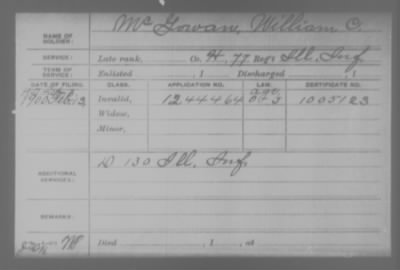 NAME OF SOLDIER: McGowan, William C.
SERVICE: Late rank, Co. H, 77 Reg't Ill. Inf.
TERM OF SERVICE: Enlisted , 1 Discharged , 1
DATE OF FILING. CLASS. APPLICATION NO. LAW. CERTIFICATE NO.
1900 Feb. 12 Invalid, 1244464 1005123
Widow,
Minor,
ADDITIONAL SERVICES: D 130 Ill. Inf.
REMARKS:
Died , 1 , at